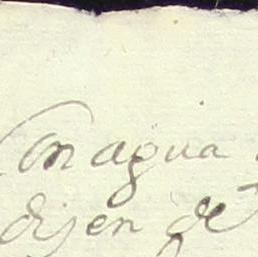 Con agua
dijen de